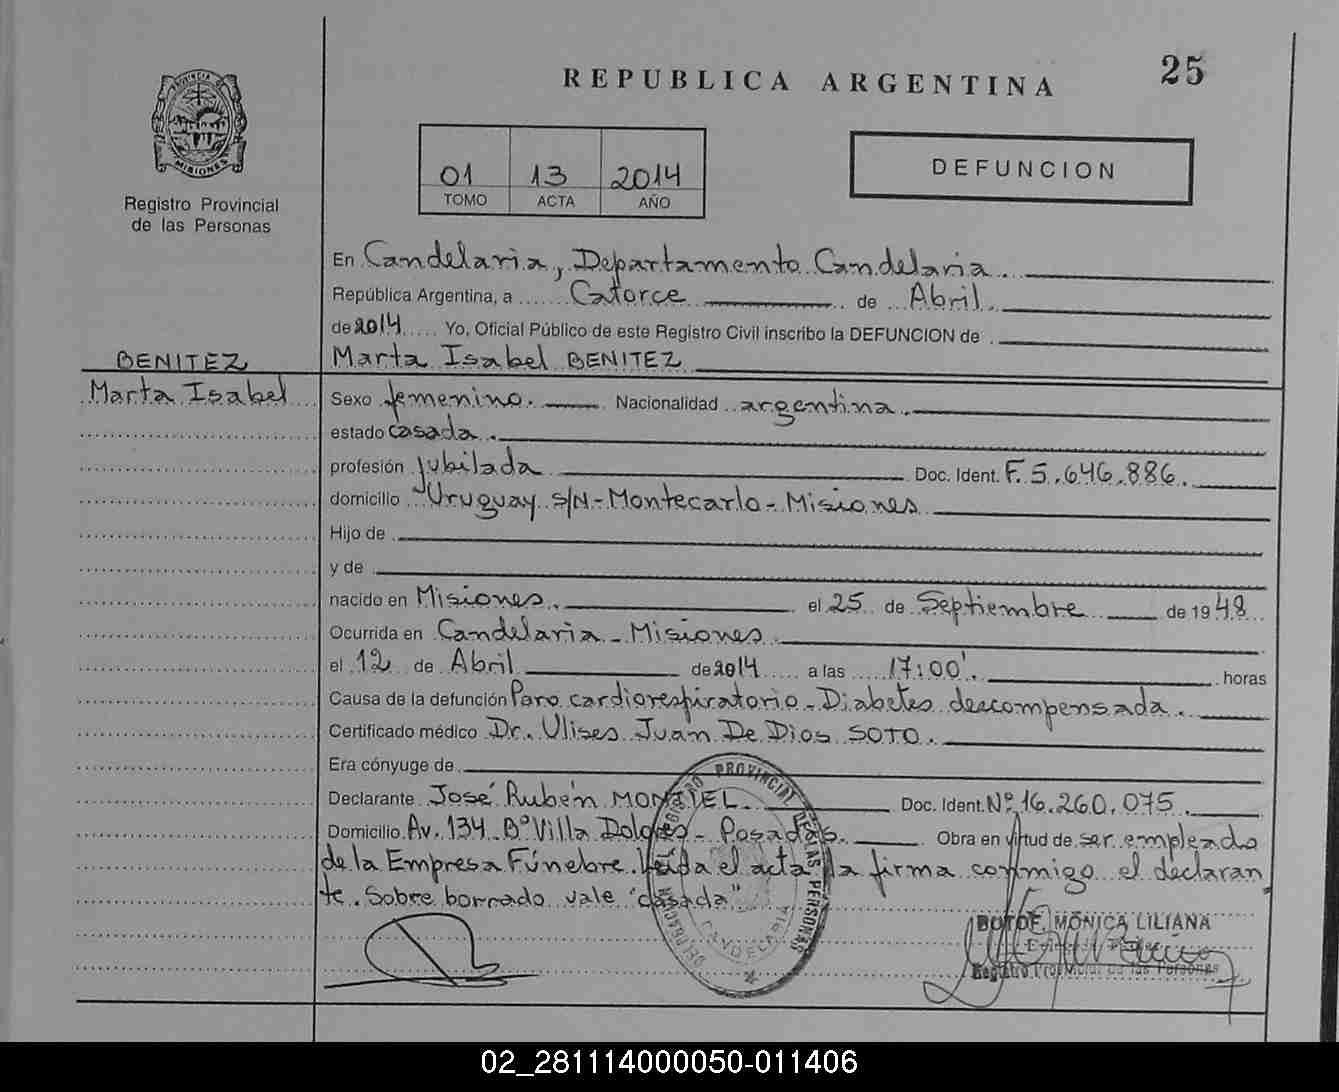 REPUBLICA ARGENTINA
25
PROVINCIA
MISIONES
Registro Provincial
de las Personas
01 13 2014
TOMO ACTA AÑO
DEFUNCION
En Candelaria, Departamento Candelaria.
República Argentina, a Catorce de Abril.
de 2014 Yo, Oficial Público de este Registro Civil inscribo la DEFUNCION de
BENITEZ
Marta Isabel
Marta Isabel BENITEZ
Sexo femenino. Nacionalidad argentina.
estado casada.
profesión jubilada Doc. Ident. F. 5.646.886.
domicilio Uruguay S/N - Montecarlo - Misiones
Hijo de
y de
nacido en Misiones. el 25 de Septiembre de 1948
Ocurrida en Candelaria - Misiones
el 12 de Abril de 2014 a las 17:00'. horas
Causa de la defunción Paro cardiorespiratorio - Diabetes descompensada.
Certificado médico Dr. Ulises Juan De Dios SOTO.
Era cónyuge de
Declarante José Rubén MONTIEL Doc. Ident. Nº 16.260.075
Domicilio Av. 134 Bº Villa Dolores - Posadas. Obra en virtud de ser empleado
de la Empresa Fúnebre. Leída el acta la firma conmigo el declaran
te. Sobre borrado vale "casada"
REGISTRO PROVINCIAL DE LAS PERSONAS
CANDELARIA
MÓNICA LILIANA
Registro Provincial de las Personas
02_281114000050-011406